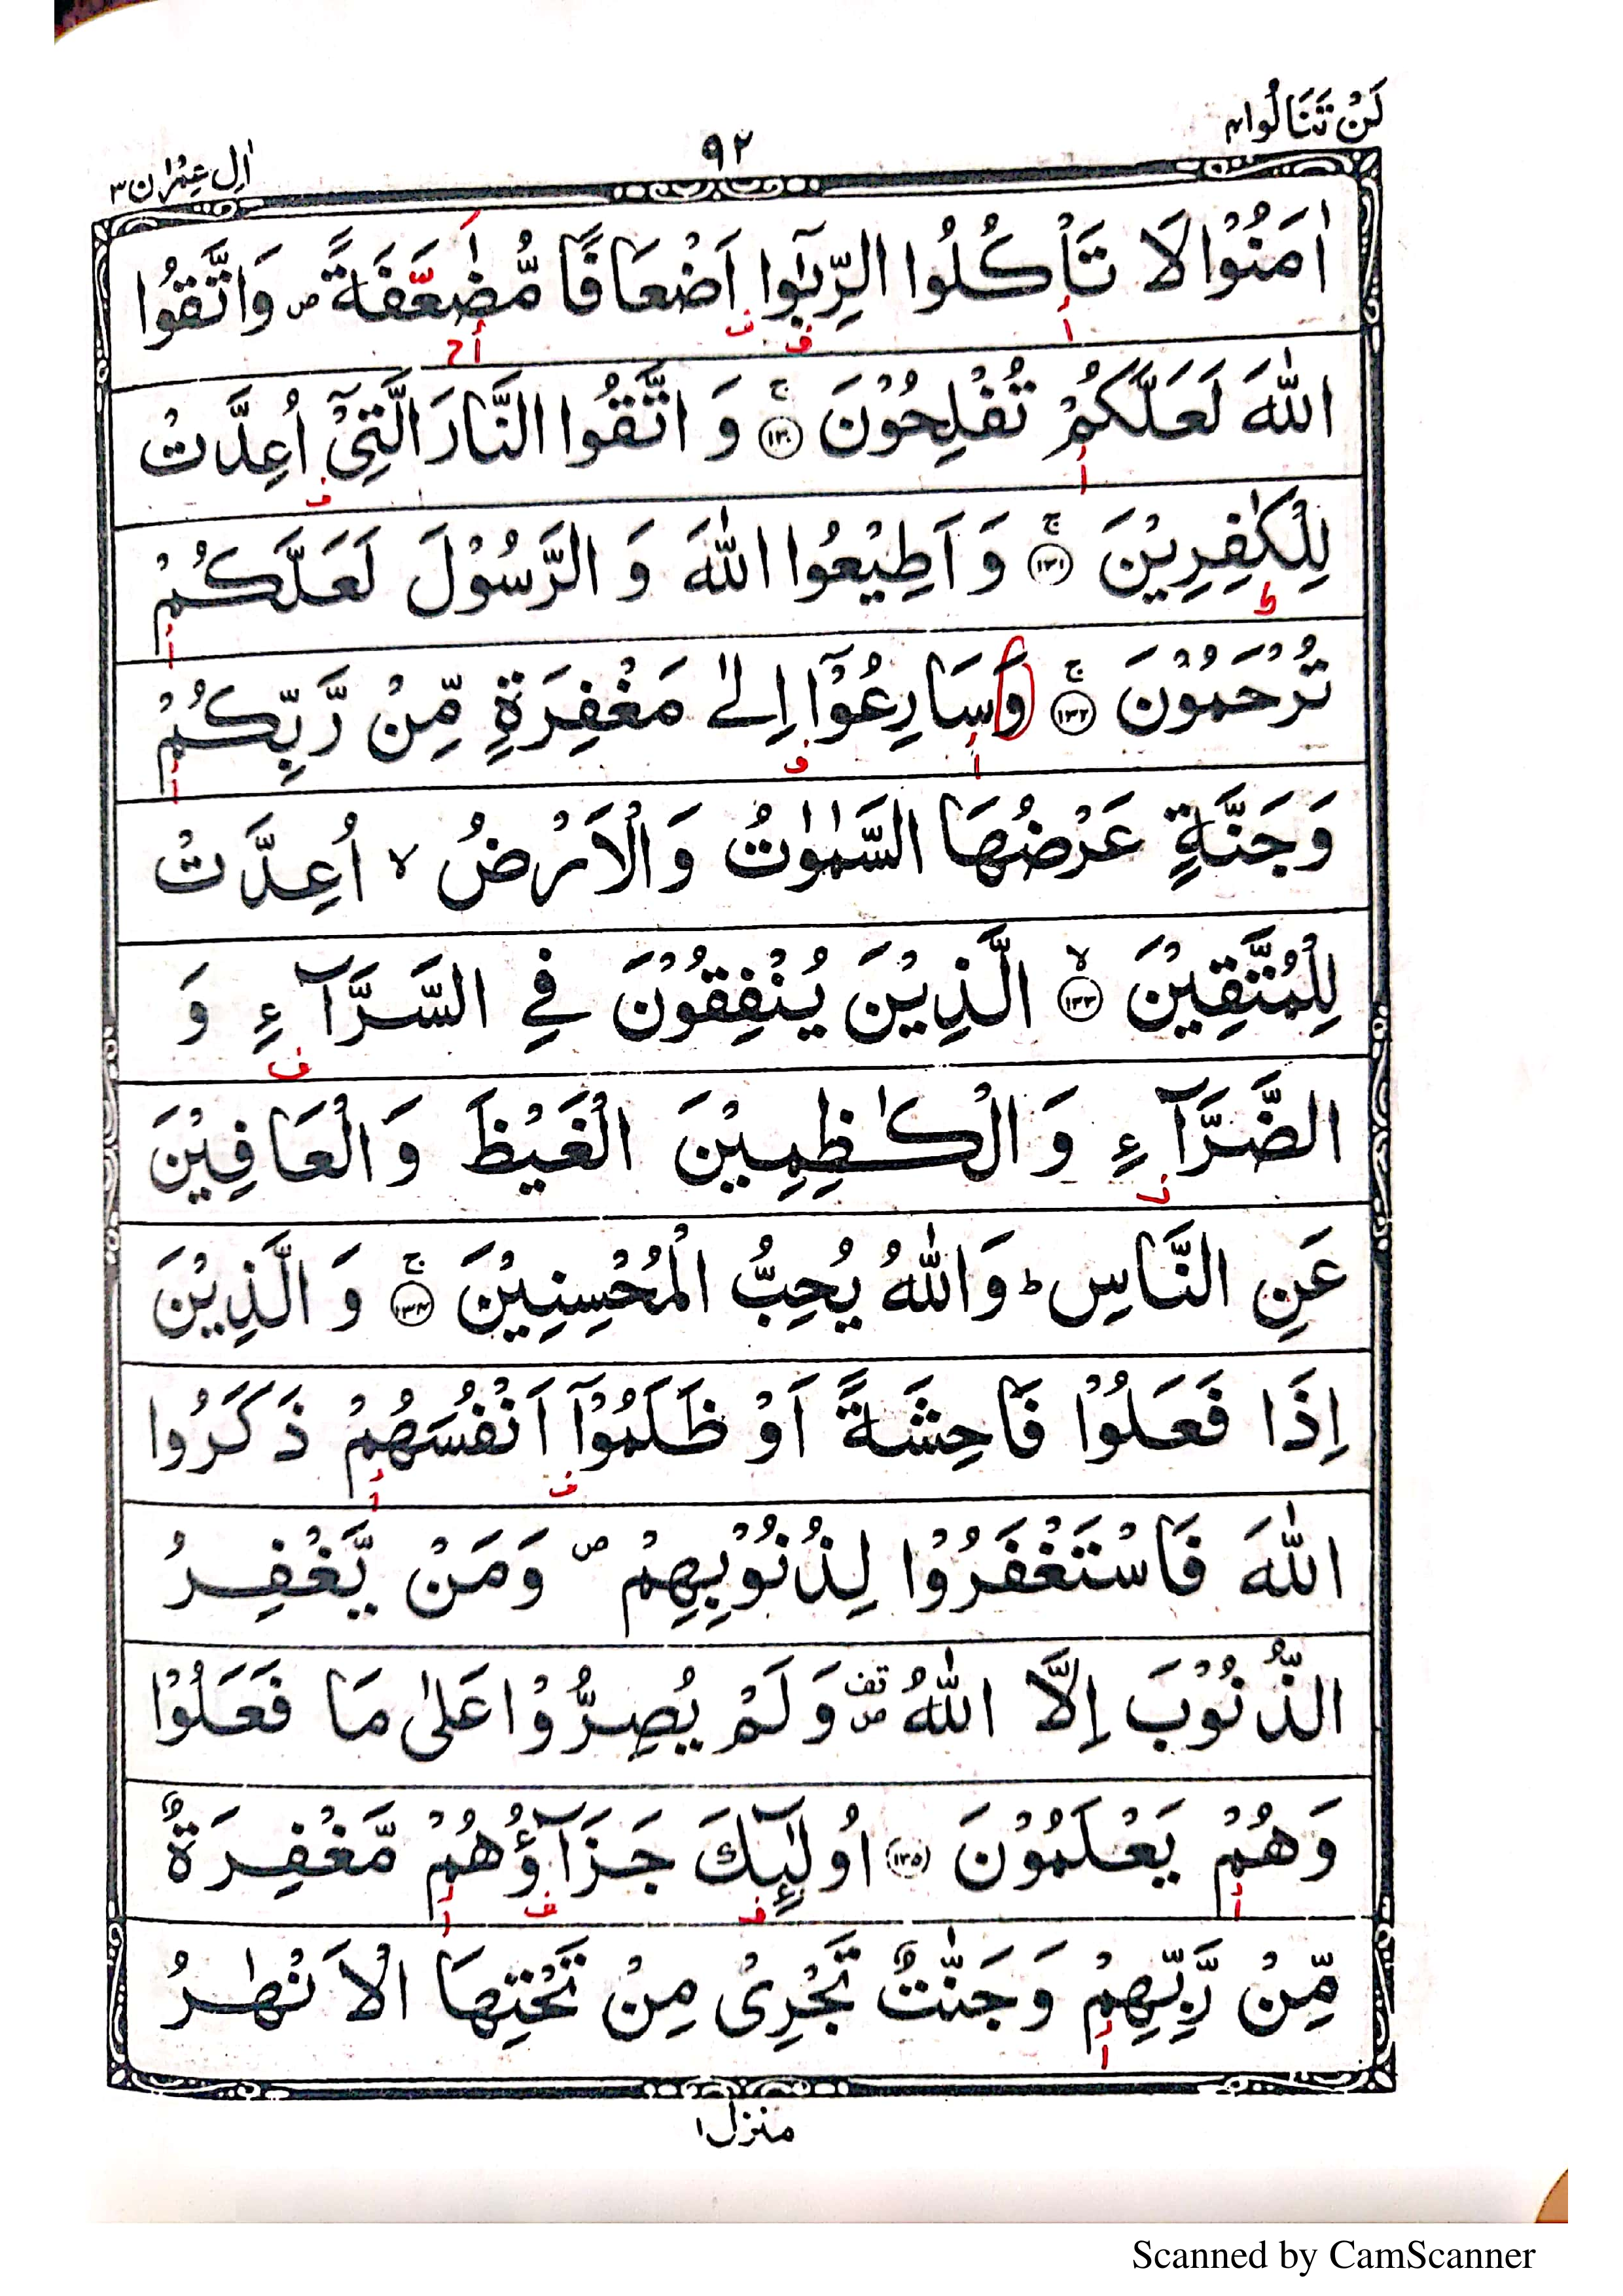 لَنْ تَنَالُوا۴
۹۲
اٰلِ عِمْرٰن۳
اٰمَنُوْا لَا تَاْكُلُوا الرِّبٰٓوا اَضْعَافًا مُّضٰعَّفَةً ص وَاتَّقُوا
اللّٰهَ لَعَلَّكُمْ تُفْلِحُوْنَ ۚ ﴿۱۳۰﴾ وَ اتَّقُوا النَّارَ الَّتِیْۤ اُعِدَّتْ
لِلْكٰفِرِیْنَ ۚ ﴿۱۳۱﴾ وَ اَطِیْعُوا اللّٰهَ وَ الرَّسُوْلَ لَعَلَّكُمْ
تُرْحَمُوْنَ ۚ ﴿۱۳۲﴾ وَسَارِعُوْۤا اِلٰی مَغْفِرَةٍ مِّنْ رَّبِّكُمْ
وَجَنَّةٍ عَرْضُهَا السَّمٰوٰتُ وَالْاَرْضُ ۙ اُعِدَّتْ
لِلْمُتَّقِیْنَ ۙ ﴿۱۳۳﴾ الَّذِیْنَ یُنْفِقُوْنَ فِی السَّرَّآءِ وَ
الضَّرَّآءِ وَ الْكٰظِمِیْنَ الْغَیْظَ وَ الْعَافِیْنَ
عَنِ النَّاسِ ؕ وَاللّٰهُ یُحِبُّ الْمُحْسِنِیْنَ ۚ ﴿۱۳۴﴾ وَ الَّذِیْنَ
اِذَا فَعَلُوْا فَاحِشَةً اَوْ ظَلَمُوْۤا اَنْفُسَهُمْ ذَكَرُوا
اللّٰهَ فَاسْتَغْفَرُوْا لِذُنُوْبِهِمْ ص وَمَنْ یَّغْفِرُ
الذُّنُوْبَ اِلَّا اللّٰهُ قف ص وَلَمْ یُصِرُّوْا عَلٰی مَا فَعَلُوْا
وَهُمْ یَعْلَمُوْنَ ﴿۱۳۵﴾ اُولٰٓئِكَ جَزَآؤُهُمْ مَّغْفِرَةٌ
مِّنْ رَّبِّهِمْ وَجَنّٰتٌ تَجْرِیْ مِنْ تَحْتِهَا الْاَنْهٰرُ
منزل۱
Scanned by CamScanner